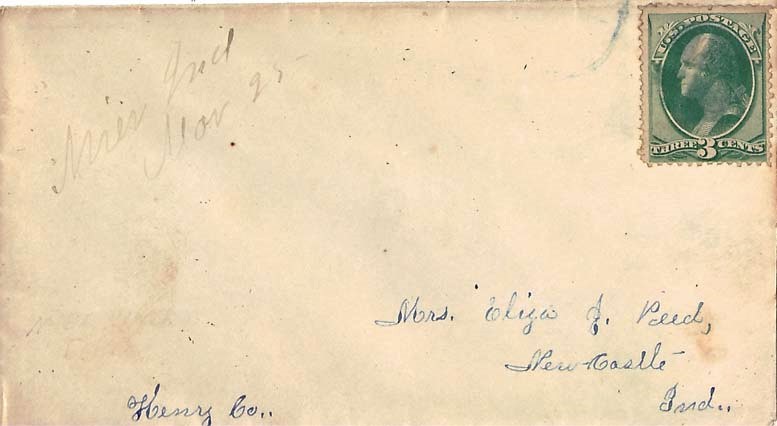 Mier Ind
Nov 25
U.S. POSTAGE
THREE 3 CENTS
Mrs. Eliza J. Reed,
New-Castle
Ind..
Henry Co..